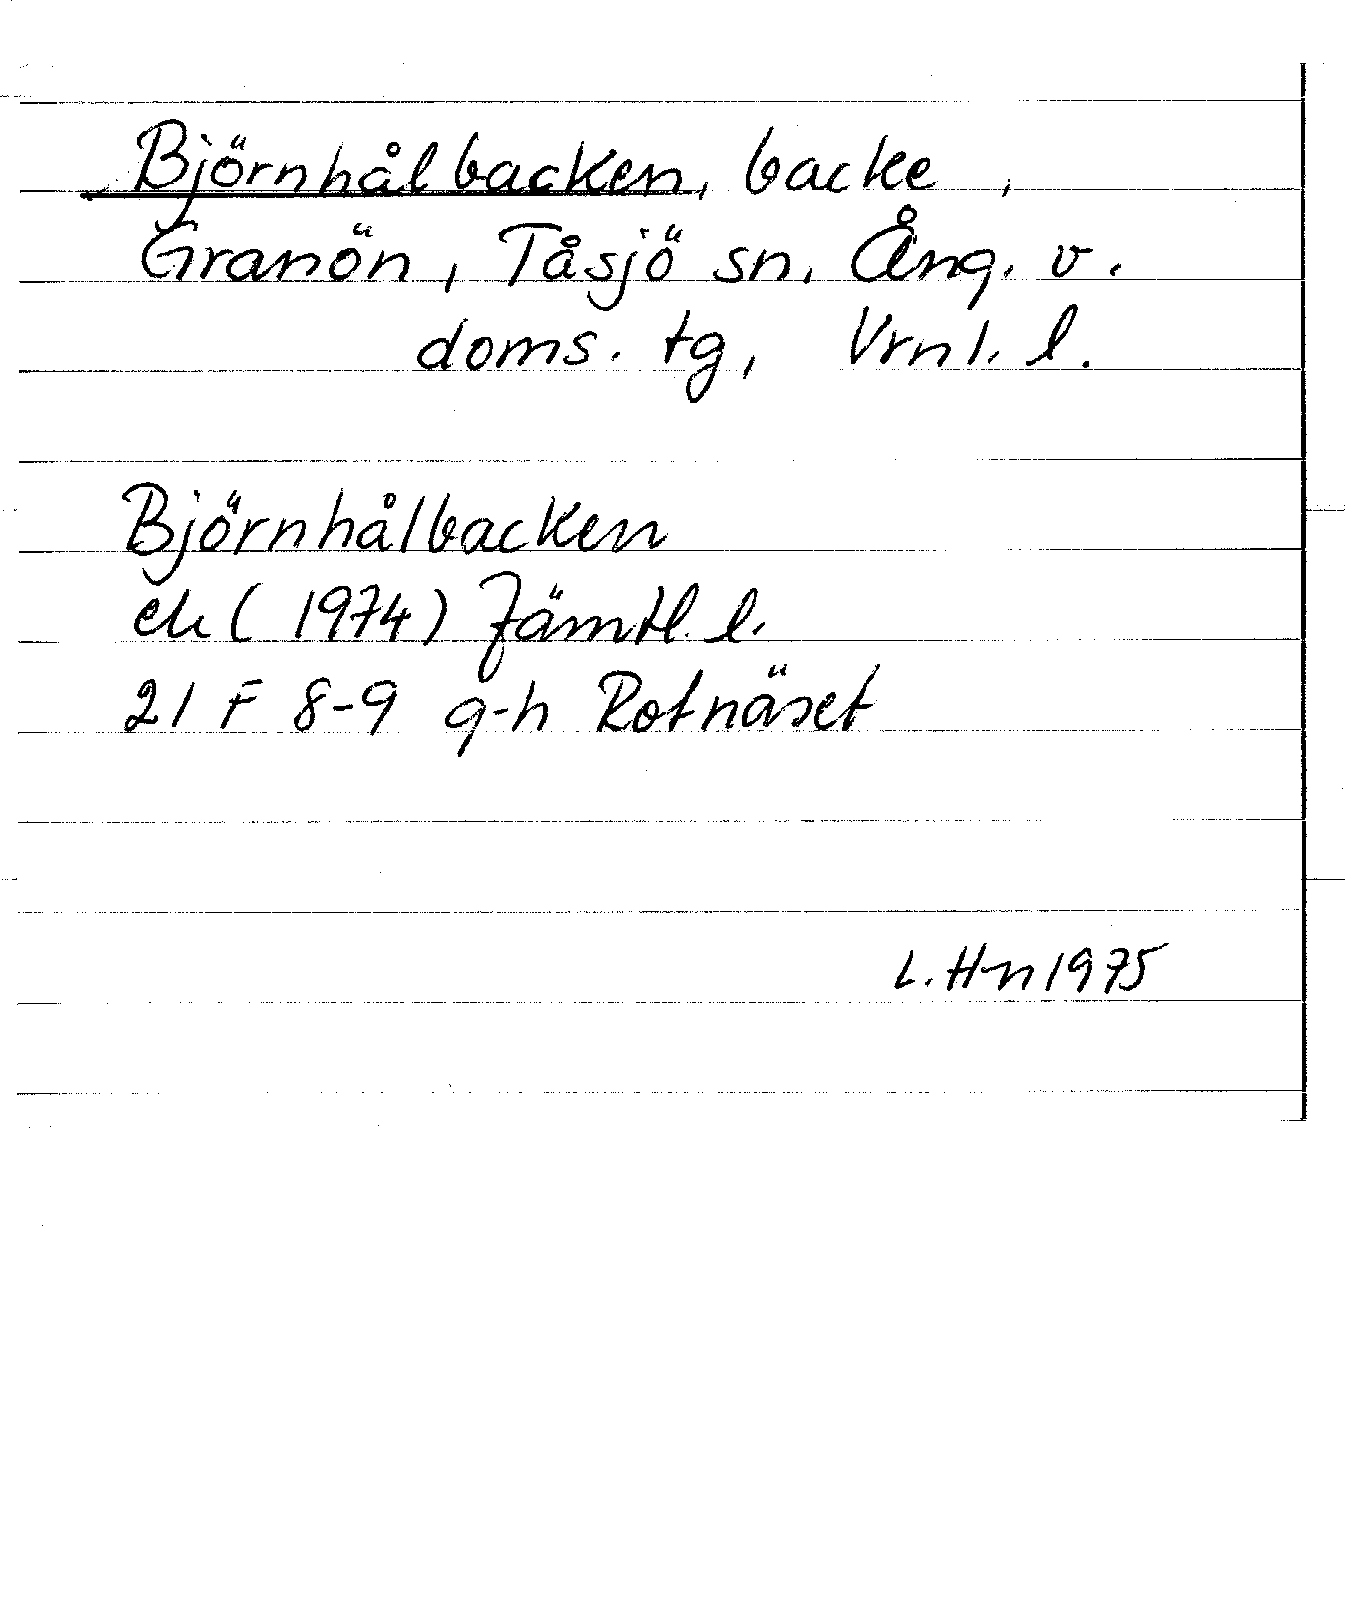 Björnhålbacken, backe,
Granön, Tåsjö sn, Ång. v.
doms. tg, Vrnl. l.
Björnhålbacken
ek (1974) Jämtl. l.
21 F 8-9 g-h Rotnäset
L. H-n 1975